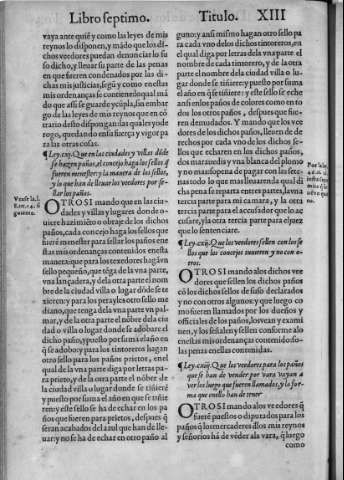 Libro septimo. Titulo. XIII
vaya ante quiē y como las leyes de mis
reynos lo disponen, y mādo que los di-
chos veedores puedan denunciar lo su
so dicho, y lleuar su parte de las penas
en que fueren condenados por las di-
chas mis justicias, segū y como en estas
mis ordenanças se contiene lo qual mā
do que assi se guarde y cūpla, sin embar
go de las leyes de mis reynos que en cō
trario desto dispongan: las quales yo de
rogo, quedando en su fuerça y vigor pa
ra las otras cosas.
¶ Ley. cxj. Que en las ciudades y villas dōde
se hagan paños, el concejo haga los sellos q̄
fueren menester: y la manera de los sellos,
y lo que han de lleuar los veedores por se-
llar los paños.
OTROSI mando que en las ciu-
dades y villas y lugares donde o-
uiere hazimiēto o obraje de los dichos
paños, cada concejo haga los sellos que
fuerē menester para sellar los paños en e
stas mis ordenanças contenidos en esta
manera: que para los texedores hagā vn
sello pequeño, que tēga de la vna parte,
vna lançadera, y de la otra parte el nom
bre de la ciudad villa o lugar dōde se te
xieren: y para los perayles otro sello me
diano, que tenga de la vna parte vn pal-
mar, y de la otra parte el nōbre dela ciu
dad o villa o lugar donde se adobare el
dicho paño, y puesto por suma el año en
q̄ se adobo: y para los tintoreros hagan
otro sello para los paños prietos, en el
qual de la vna parte diga por letras pa-
ra prieto, y de la otra parte el nōbre de
la ciudad villa o lugar donde se tiñierē
y puesto por suma el año en que se tiñie
ren: y este sello se ha de echar en los pa-
ños que fueren para prietos, despues q̄
seran acabados del azul que han de lle-
uar: y no se ha de echar en otro paño al
guno: y ansi mismo hagan otro sello pa
ra cada vno de los dichos tintoreros, en
el qual diga por letras dela vna parte el
nombre de cada tintorero, y de la otra
parte el nombre dela ciudad villa o lu-
gar donde se tiñieren: y puesto por suma
el año en q̄ se tiñiere: y este sello se eche
ansi en los paños de colores como en to
dos los otros paños, despues que fue-
ren demudados. Y mando que los vee
dores de los dichos paños, lleuen de de
rechos por cada vno de los dichos se-
llos que echaren en los dichos paños,
dos marauedis y vna blanca del plomo
y no mas: so pena de pagar con las sete-
nas todo lo que mas lleuarē: la qual di
cha pena se reparta en tres partes, la vna
tercia parte para mi camara, y la otra
tercia parte para el accusador que lo ac
cusare, y la otra tercia parte para el juez
que lo sentenciare.
¶ Ley. cxij. Que los veedores sellen con los se
llos que los concejos tuuieren y no con o-
tros.
OTROSI mando a los dichos vee
dores que sellen los dichos paños
cō los dichos sellos de suso declarados
y no con otros algunos: y que luego co
mo fueren llamados por los dueños y
officiales de los paños, los vean y exami
nen, y los señalen y sellen conforme a lo
en estas mis ordenanças contenido: so
las penas en ellas contenidas.
¶ Ley. cxiij. Que los veedores para los paños
que se han de vender por vara vayan a
ver los luego que fueren llamados, y la for
ma que en ello han de tener
OTROSI mando a los veedores q̄
fuerē puestos o diputados para los
paños q̄ los mercaderes dlos mis reynos
y señorios hā de vēder ala vara, q̄ luego
como